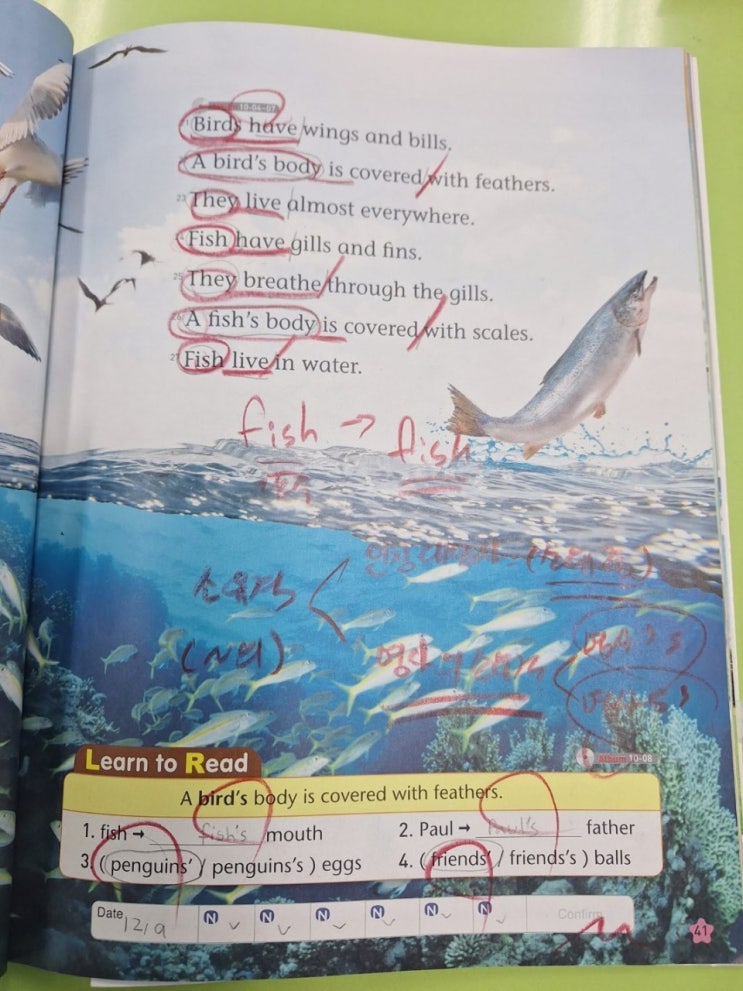 10-04-07
21 Birds have wings and bills.
A bird's body is covered with feathers.
23 They live almost everywhere.
Fish have gills and fins.
25 They breathe through the gills.
26 A fish's body is covered with scales.
27 Fish live in water.
fish → fish
소유격
(~의)
명사's
명사s'
Learn to Read
Album 10-08
A bird's body is covered with feathers.
1. fish → fish's mouth 2. Paul → Paul's father
3. ( penguins' / penguins's ) eggs 4. ( friends' / friends's ) balls
Date 12/9 N N N N N N Confirm
41